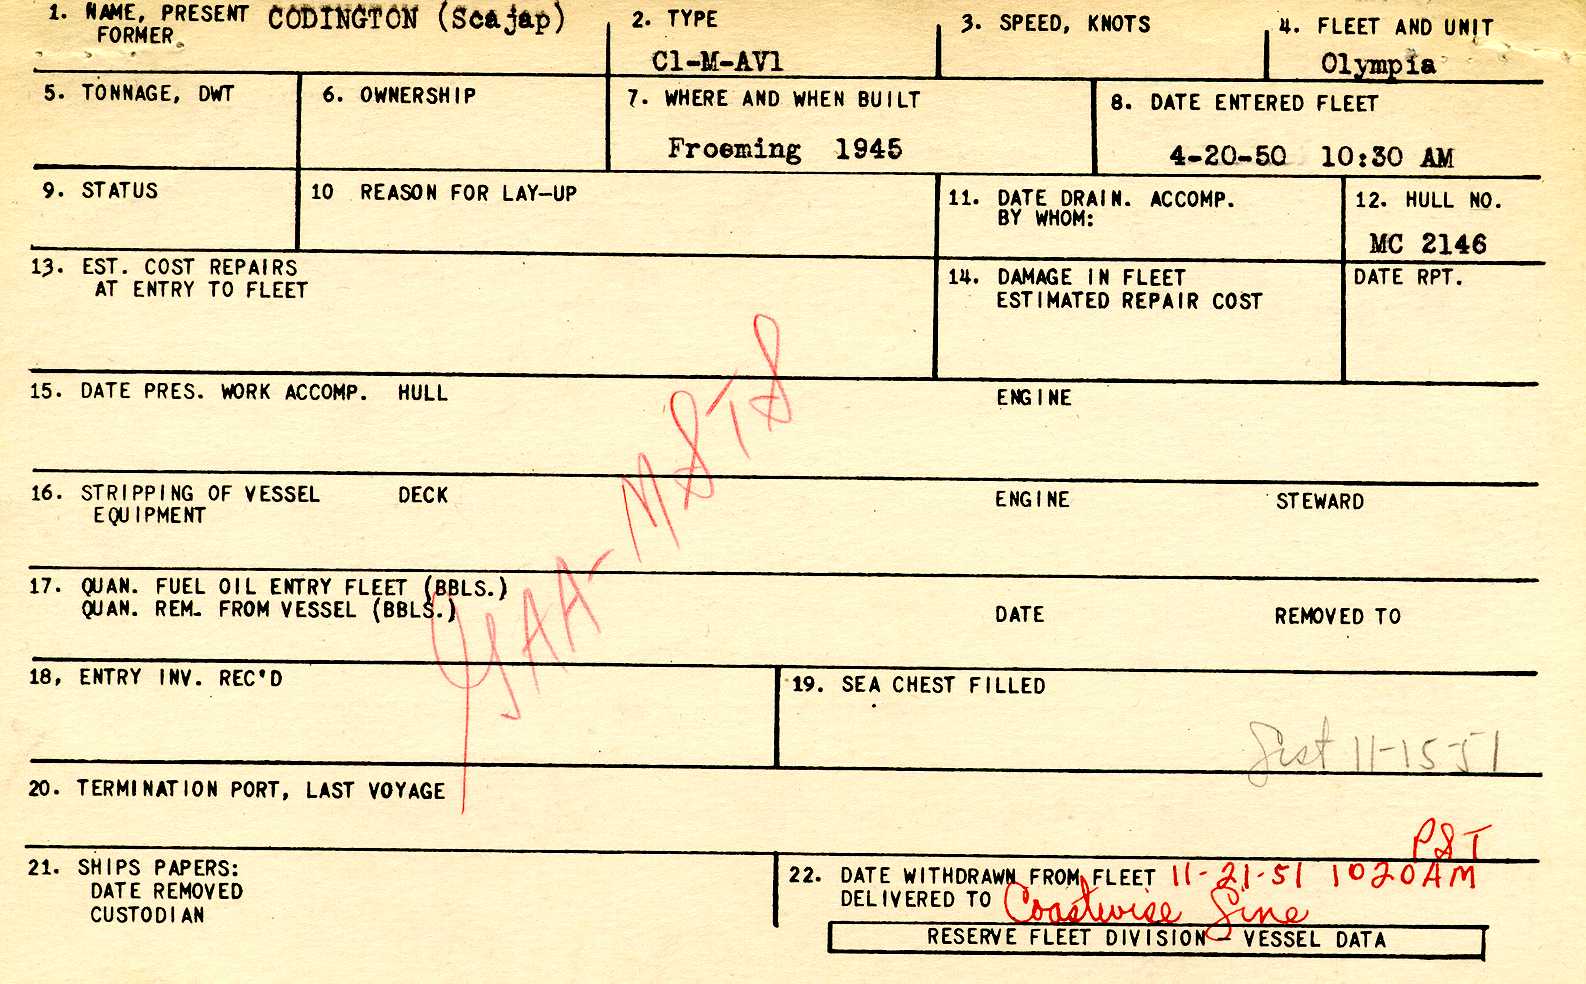 1. NAME, PRESENT CODINGTON (Scajap)
FORMER
2. TYPE
C1-M-AV1
3. SPEED, KNOTS
4. FLEET AND UNIT
Olympia
5. TONNAGE, DWT
6. OWNERSHIP
7. WHERE AND WHEN BUILT
Froeming 1945
8. DATE ENTERED FLEET
4-20-50 10:30 AM
9. STATUS
10 REASON FOR LAY-UP
11. DATE DRAIN. ACCOMP.
BY WHOM:
12. HULL NO.
MC 2146
13. EST. COST REPAIRS
AT ENTRY TO FLEET
14. DAMAGE IN FLEET
ESTIMATED REPAIR COST
DATE RPT.
15. DATE PRES. WORK ACCOMP. HULL
ENGINE
16. STRIPPING OF VESSEL DECK
EQUIPMENT
ENGINE
STEWARD
GAA-MSTS
17. QUAN. FUEL OIL ENTRY FLEET (BBLS.)
QUAN. REM. FROM VESSEL (BBLS.)
DATE
REMOVED TO
18, ENTRY INV. REC'D
19. SEA CHEST FILLED
11-15-51
20. TERMINATION PORT, LAST VOYAGE
21. SHIPS PAPERS:
DATE REMOVED
CUSTODIAN
PST
22. DATE WITHDRAWN FROM FLEET 11-21-51 1020AM
DELIVERED TO Coastwise Line
RESERVE FLEET DIVISION - VESSEL DATA